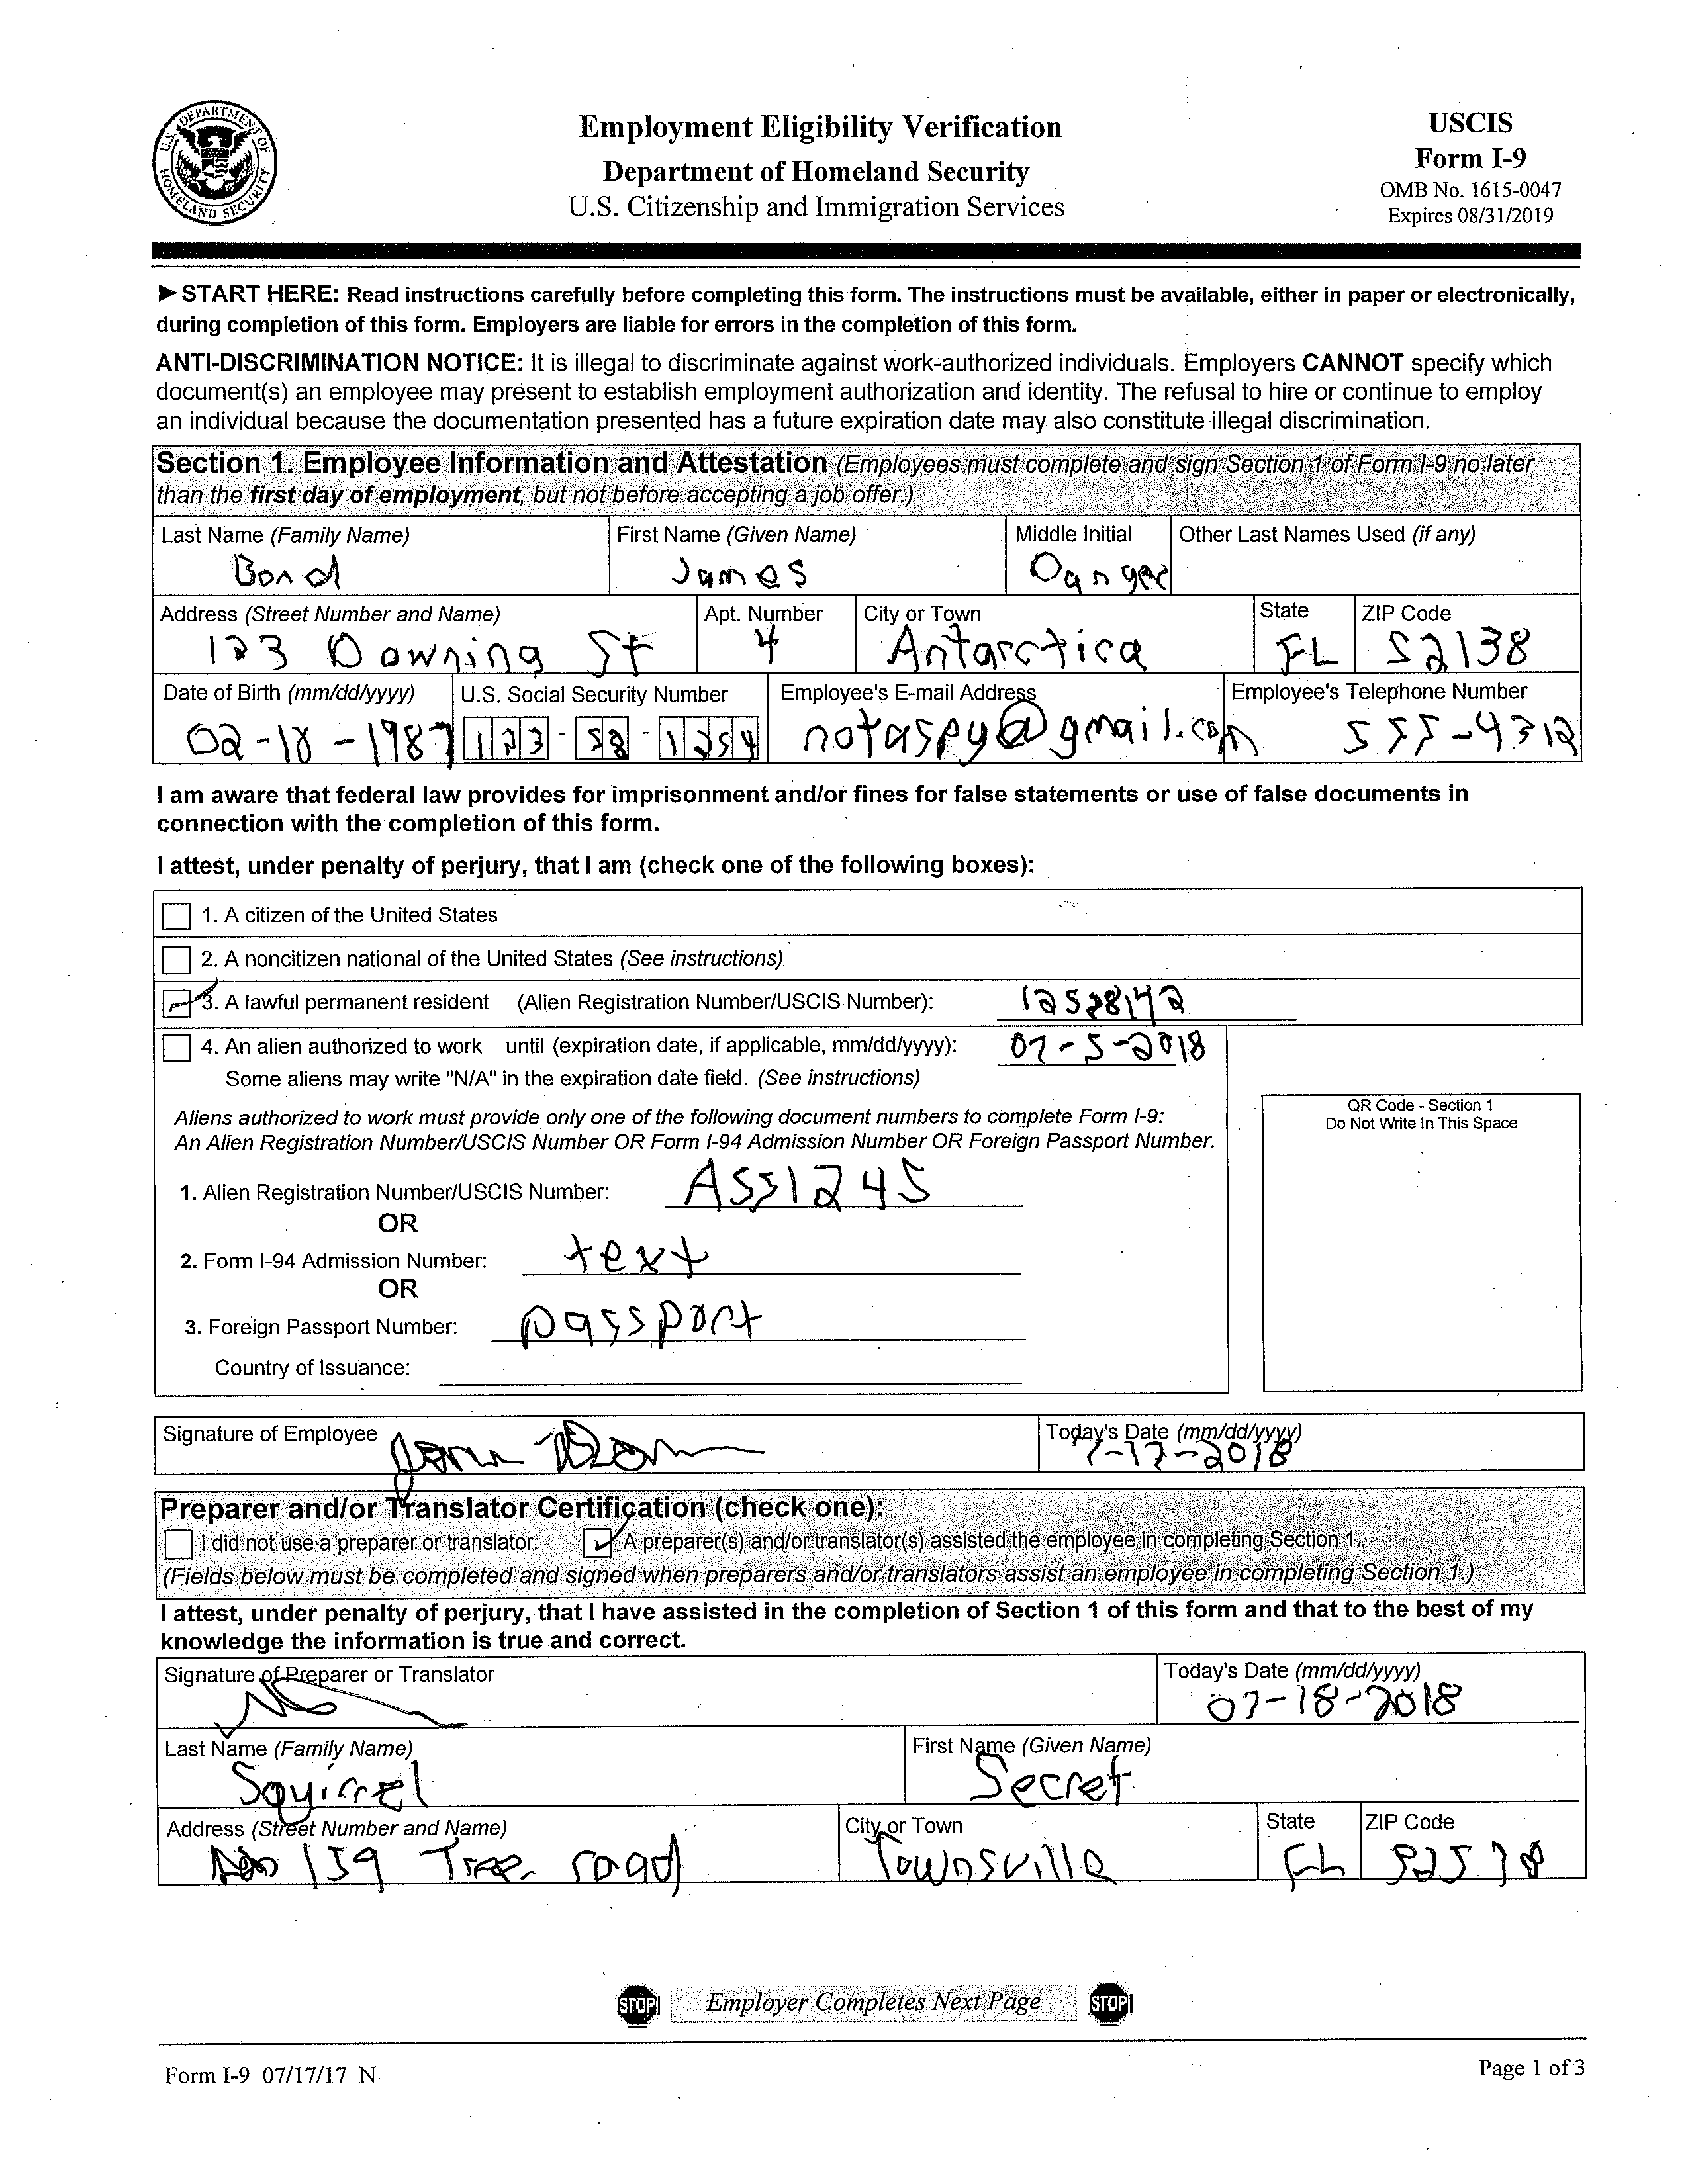 U.S. DEPARTMENT OF HOMELAND SECURITY
Employment Eligibility Verification
Department of Homeland Security
U.S. Citizenship and Immigration Services
USCIS
Form I-9
OMB No. 1615-0047
Expires 08/31/2019
►START HERE: Read instructions carefully before completing this form. The instructions must be available, either in paper or electronically,
during completion of this form. Employers are liable for errors in the completion of this form.
ANTI-DISCRIMINATION NOTICE: It is illegal to discriminate against work-authorized individuals. Employers CANNOT specify which
document(s) an employee may present to establish employment authorization and identity. The refusal to hire or continue to employ
an individual because the documentation presented has a future expiration date may also constitute illegal discrimination.
Section 1. Employee Information and Attestation (Employees must complete and sign Section 1 of Form I-9 no later
than the first day of employment, but not before accepting a job offer.)
Last Name (Family Name) First Name (Given Name) Middle Initial Other Last Names Used (if any)
Bond James Danger
Address (Street Number and Name) Apt. Number City or Town State ZIP Code
123 Downing St 4 Antarctica FL 52138
Date of Birth (mm/dd/yyyy) U.S. Social Security Number Employee's E-mail Address Employee's Telephone Number
02-18-1987 123 - 58 - 1254 notaspy@gmail.com 555-4312
I am aware that federal law provides for imprisonment and/or fines for false statements or use of false documents in
connection with the completion of this form.
I attest, under penalty of perjury, that I am (check one of the following boxes):
1. A citizen of the United States
2. A noncitizen national of the United States (See instructions)
3. A lawful permanent resident (Alien Registration Number/USCIS Number): 12528142
4. An alien authorized to work until (expiration date, if applicable, mm/dd/yyyy): 07-5-2018
Some aliens may write "N/A" in the expiration date field. (See instructions)
Aliens authorized to work must provide only one of the following document numbers to complete Form I-9:
An Alien Registration Number/USCIS Number OR Form I-94 Admission Number OR Foreign Passport Number.
QR Code - Section 1
Do Not Write In This Space
1. Alien Registration Number/USCIS Number: A551245
OR
2. Form I-94 Admission Number: text
OR
3. Foreign Passport Number: passport
Country of Issuance:
Signature of Employee Today's Date (mm/dd/yyyy)
7-17-2018
Preparer and/or Translator Certification (check one):
I did not use a preparer or translator. A preparer(s) and/or translator(s) assisted the employee in completing Section 1.
(Fields below must be completed and signed when preparers and/or translators assist an employee in completing Section 1.)
I attest, under penalty of perjury, that I have assisted in the completion of Section 1 of this form and that to the best of my
knowledge the information is true and correct.
Signature of Preparer or Translator Today's Date (mm/dd/yyyy)
07-18-2018
Last Name (Family Name) First Name (Given Name)
Squirrel Secret
Address (Street Number and Name) City or Town State ZIP Code
159 Tree road Townsville FL 52578
STOP Employer Completes Next Page STOP
Form I-9 07/17/17 N
Page 1 of 3